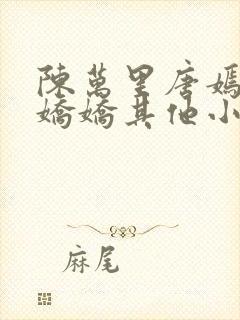 陳萬里唐嫣
嬌嬌其他小
麻尾